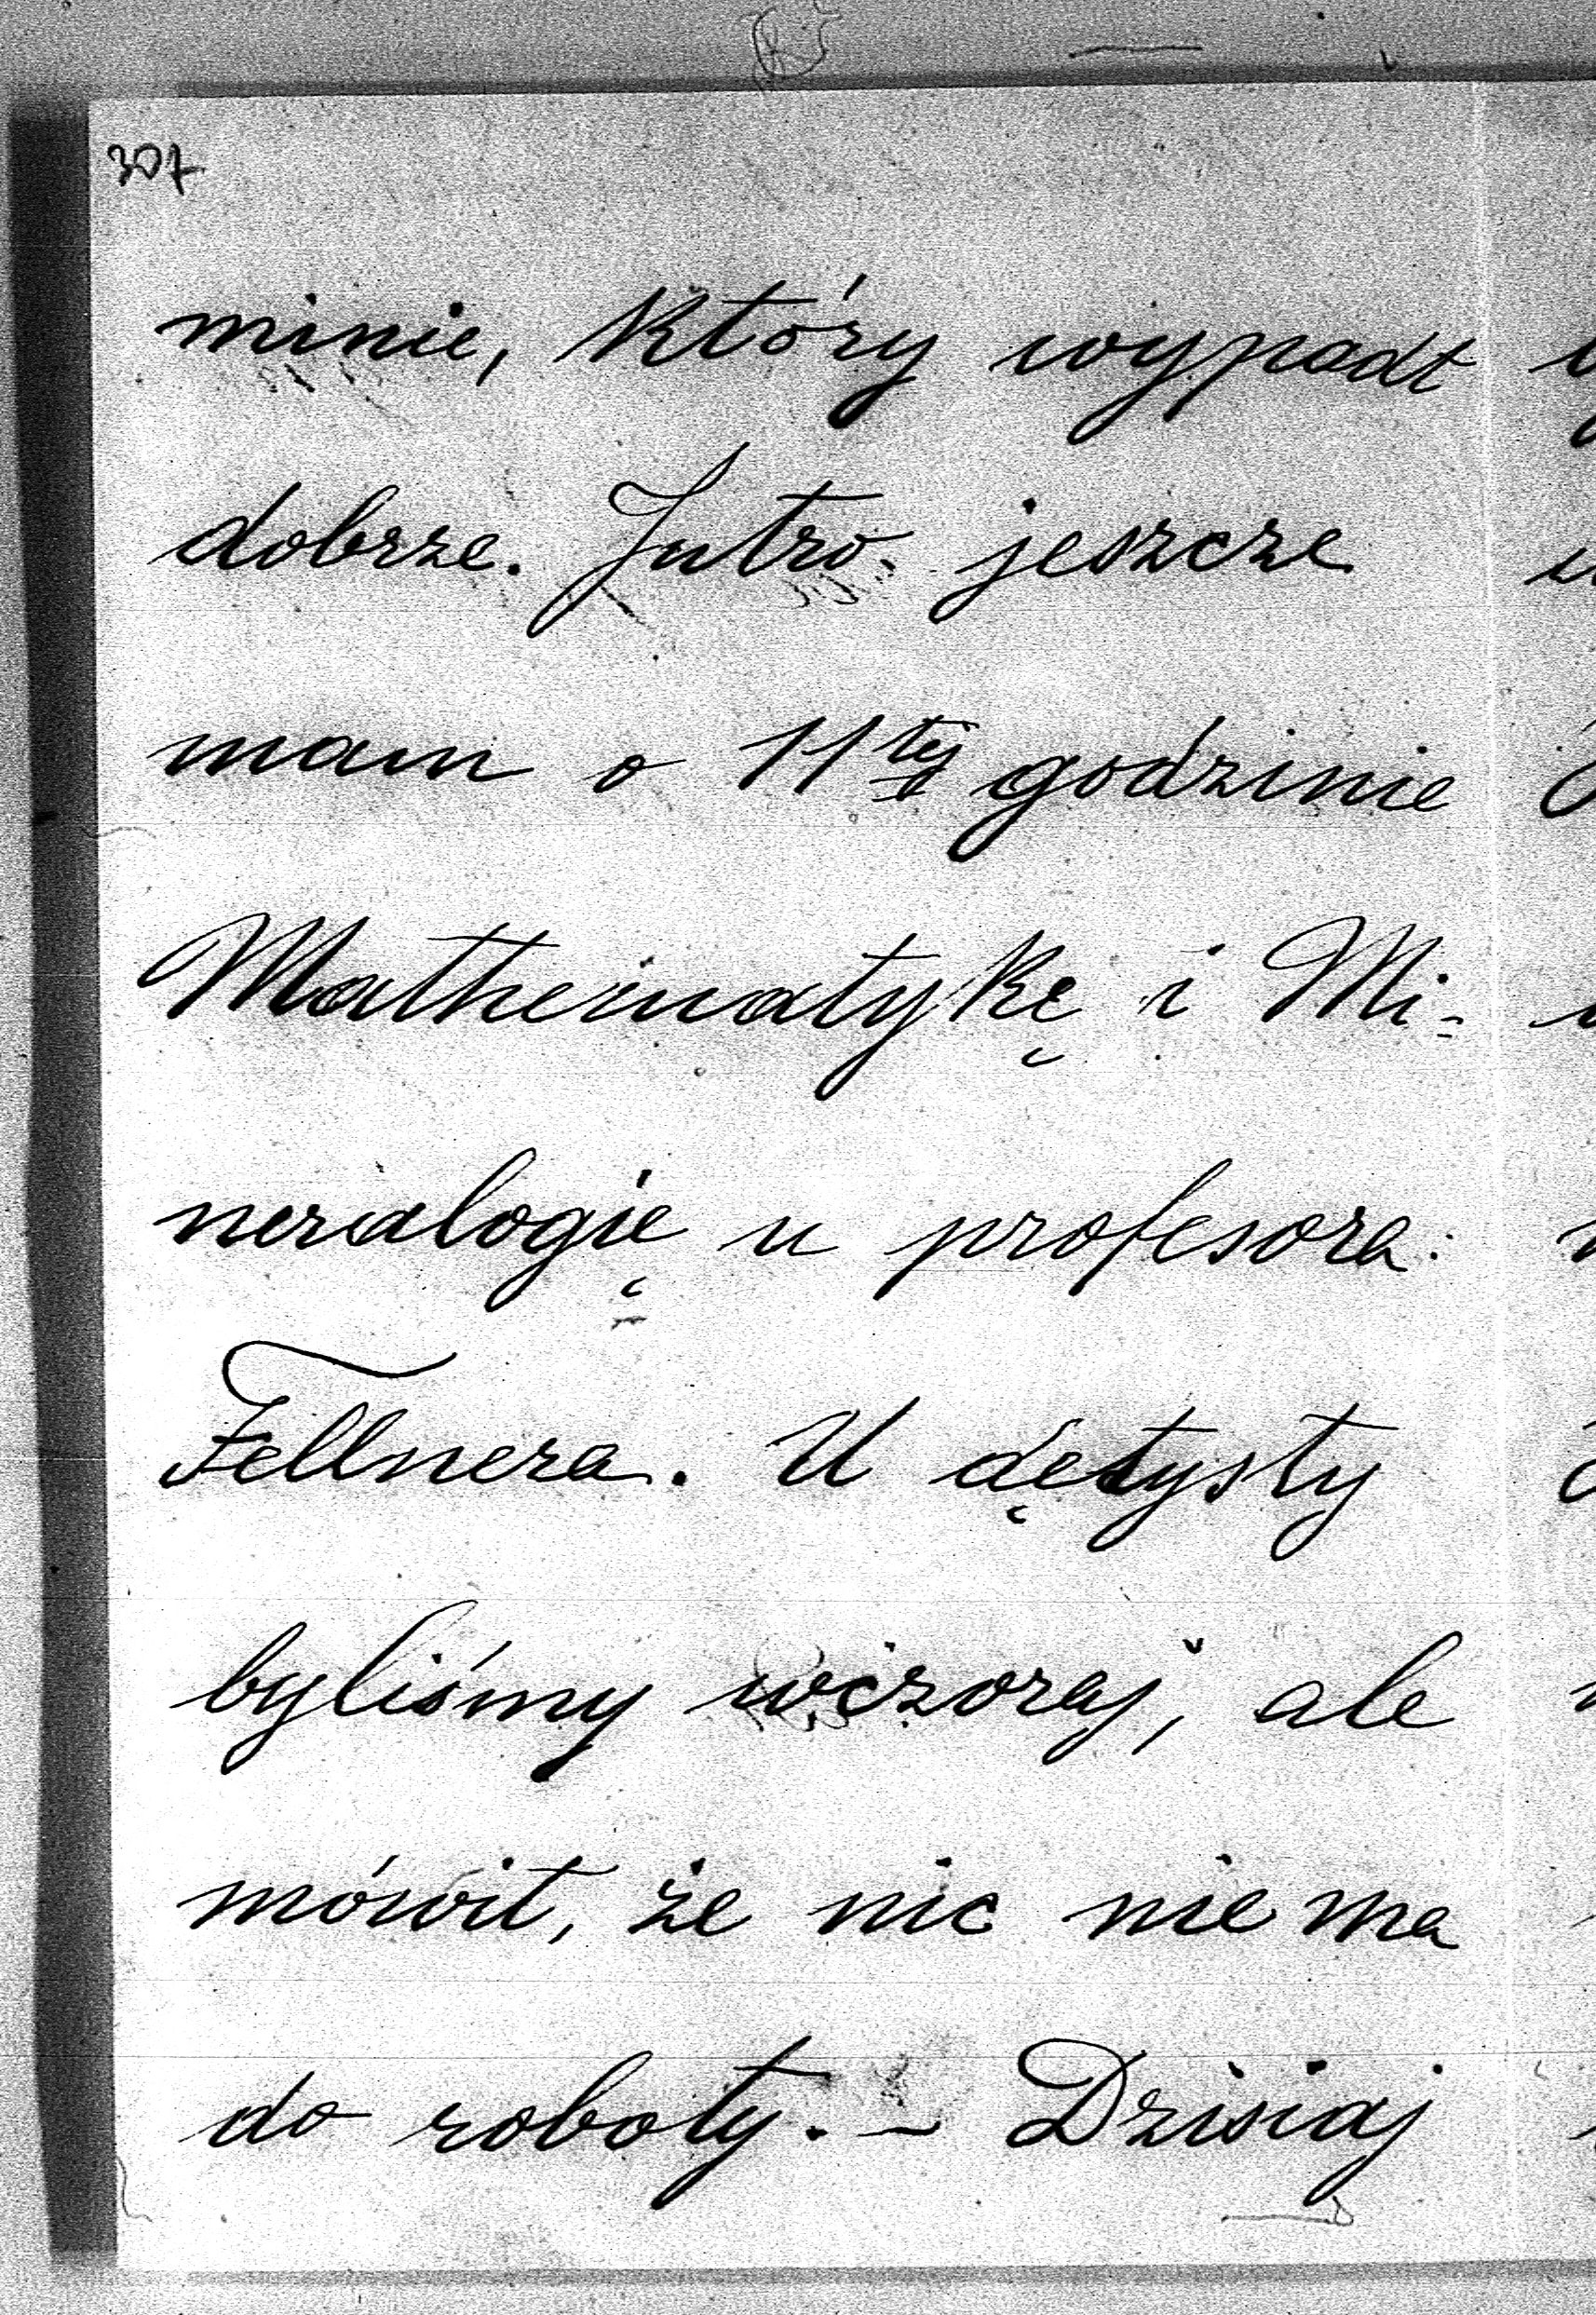 307
minie, który wypadł
dobrze. Jutro jeszcze
mam o 11tej godzinie
Mathematykę i Mi-
neralogię u profesora
Fellnera. U dętysty
byliśmy wczoraj, ale
mówił, że nic nie ma
do roboty. – Dzisiaj